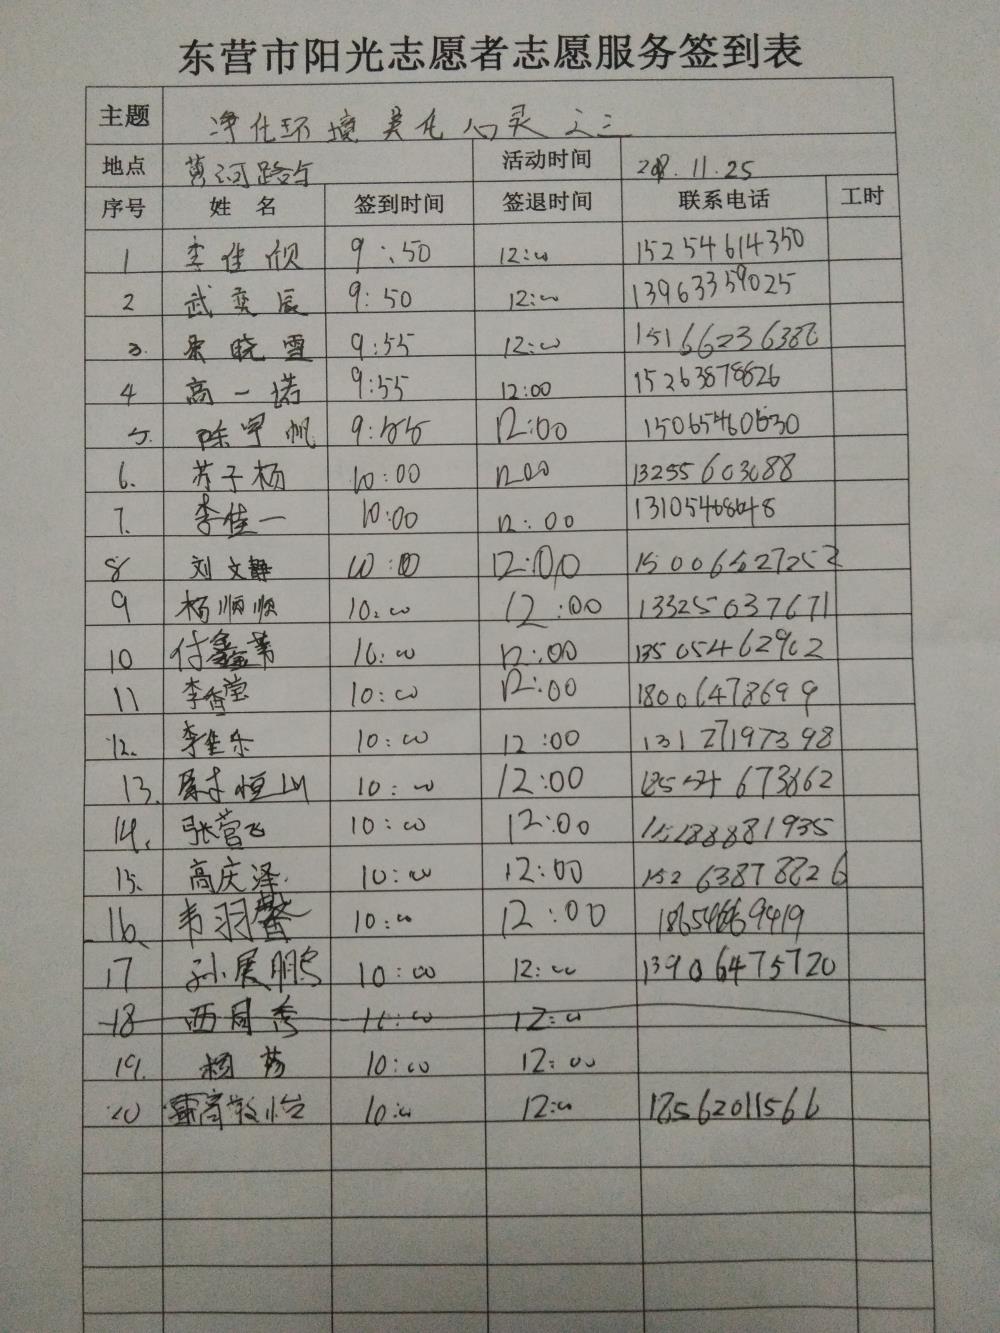 东营市阳光志愿者志愿服务签到表
主题 净化环境 美化心灵 之三
地点 黄河路 活动时间 11.25
序号 姓名 签到时间 签退时间 联系电话 工时
1 李佳欣 9:50 12:00 15254614350
2 武奕辰 9:50 12:00 13963359025
3. 晓雪 9:55 12:00
4 高一诺 9:55 12:00 15263878826
5. 陈宇帆 9:55 12:00 15065460630
6. 苏子杨 10:00 12:00 13255603088
7. 李佳一 10:00 12:00 13105468648
8 刘文静 10:00 12:00 15006527252
9 杨顺顺 10:00 12:00 13325037671
10 付鑫 10:00 12:00 13505462902
11 李香莹 10:00 12:00 18006478699
12. 李佳乐 10:00 12:00 13127197398
13. 恒山 10:00 12:00
14. 张营飞 10:00 12:00 15288881935
15. 高庆泽 10:00 12:00 15263878826
16. 韦羽馨 10:00 12:00 18654669419
17 孙展鹏 10:00 12:00 13906475720
18 西月秀 10:00 12:00
19. 杨 10:00 12:00
20 高敬怡 10:00 12:00 18562011566